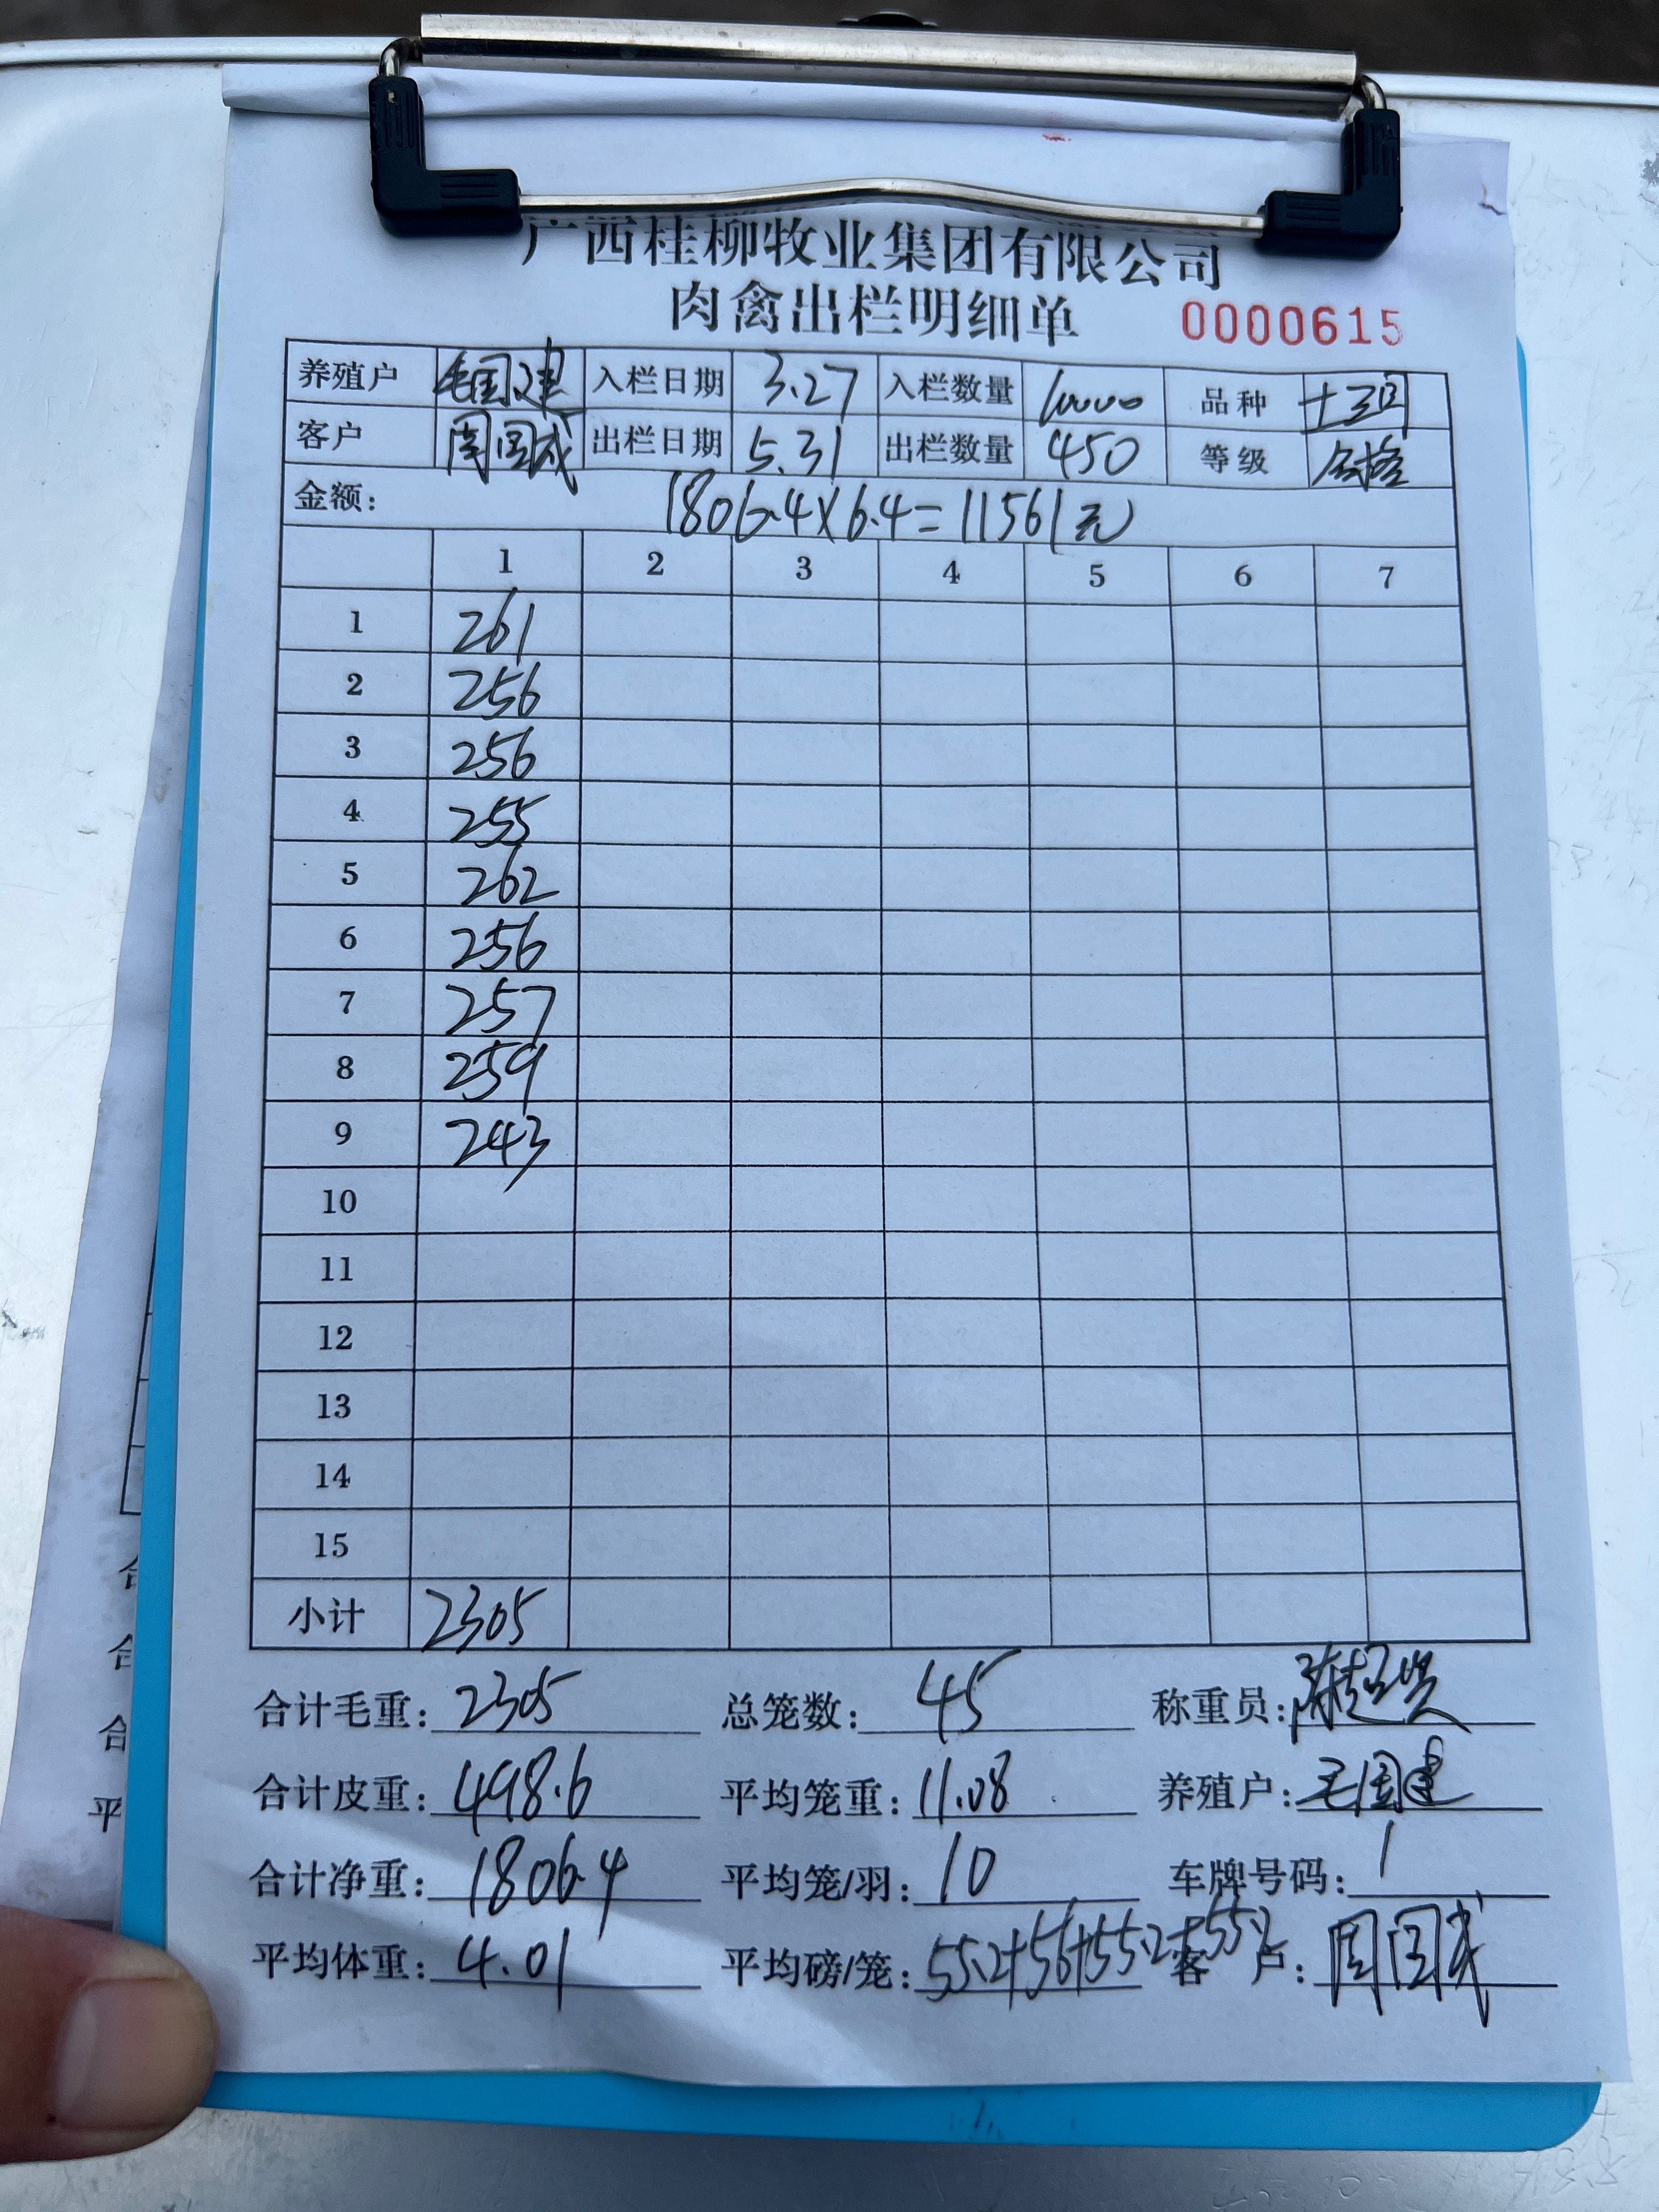 广西桂柳牧业集团有限公司
肉禽出栏明细单 0000615
养殖户 毛国建 入栏日期 3.27 入栏数量 10000 品种
客户 周国成 出栏日期 5.31 出栏数量 450 等级 合格
金额: 1806.4X6.4=11561元
1 2 3 4 5 6 7
1 261
2 256
3 256
4 255
5 262
6 256
7 257
8 259
9 243
10
11
12
13
14
15
小计 2305
合计毛重: 2305 总笼数: 45 称重员:
合计皮重: 498.6 平均笼重: 11.08 养殖户: 毛国建
合计净重: 1806.4 平均笼/羽: 10 车牌号码: 1
平均体重: 4.01 平均磅/笼: 55.2+56+55.2+55 客 户: 周国成
合
合
合
平